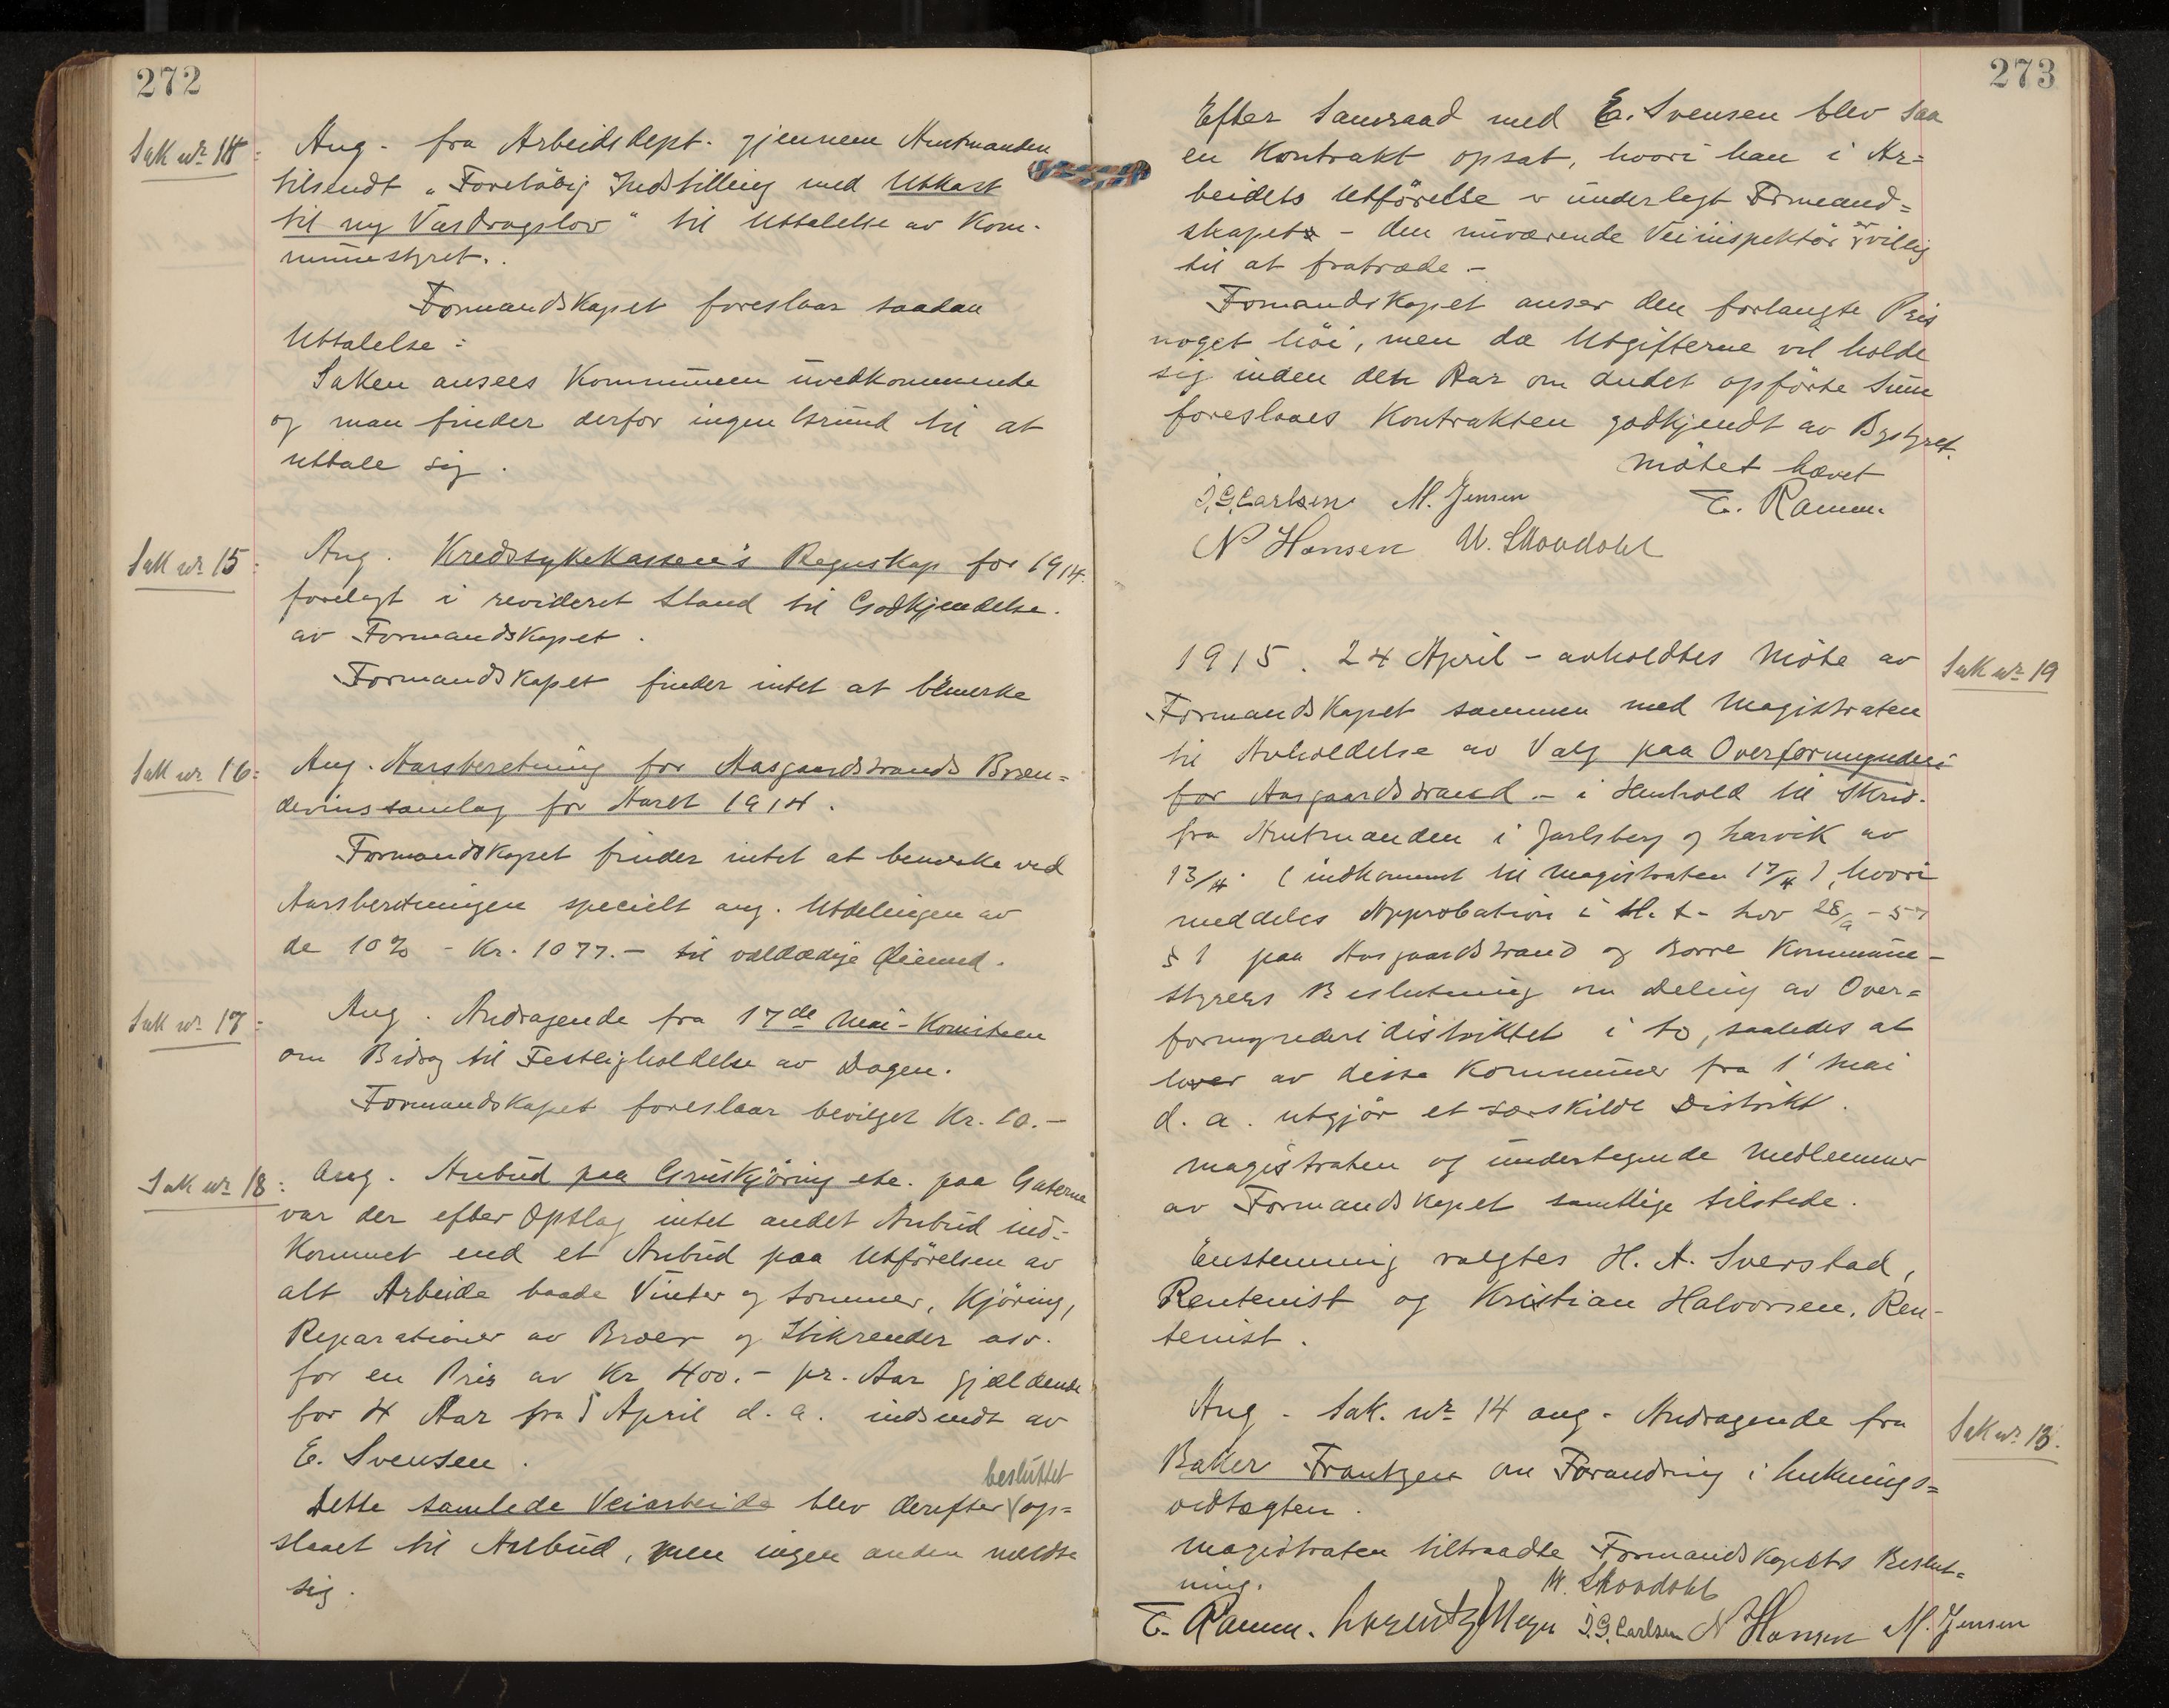 272
Sak nr 14:
Ang. fra Arbeidsdept. gjennem Amtmanden
tilsendt „Foreløbig Indstilling med Utkast
til ny Vasdragslov“ til Uttalelse av Kom-
munestyret.
Formandskapet foreslaar saadan
Uttalelse:
Saken ansees Kommunen uvedkommende
og man finder derfor ingen Grund til at
uttale sig.
Sak nr 15:
Ang. Kredssykekassen's Regnskap for 1914.
forelagt i revideret Stand til Godkjendelse.
av Formandskapet.
Formandskapet finder intet at bemerke
Sak nr 16:
Ang. Aarsberetning for Aasgaardstrands Bræn-
devinssamlag for Aaret 1914.
Formandskapet finder intet at bemerke ved
Aarsberetningen specielt ang. Utdelingen av
de 10% - Kr. 1077.- til veldædige Øiemed.
Sak nr 17:
Ang. Andragende fra 17de Mai-Komiteen
om Bidrag til Festligholdelse av Dagen.
Formandskapet foreslaar bevilget Kr. 10.-
Sak nr 18:
Ang. Anbud paa Gruskjøring etc. paa Gaterne
var der efter Opslag intet andet Anbud ind-
kommet end et Anbud paa Utførelsen av
alt Arbeide baade Vinter og Sommer, Kjøring,
Reparationer av Broer og Stikrender osv.
for en Pris av Kr 400.- pr. Aar gjældende
for 4 Aar fra 1 April d. a. indsendt av
E. Svensen.
besluttet
Dette samlede Veiarbeide blev derefter op-
slaaet til Anbud, men ingen anden meldte
sig.
273
Efter Samraad med E. Svensen blev saa
en Kontrakt opsat, hvori han i Ar-
beidets Utførelse er underlagt Formand-
skapet - den nuværende Veiinspektør er villig
til at fratræde.-
Formandskapet anser den forlangte Pris
noget høi, men da Utgifterne vil holde
sig inden den Aar om andet opførte Sum
foreslaaes Kontrakten godkjendt av Bystyret.
Møtet hævet
J.G.Carlsen M. Jensen E. Ramm.
N Hansen M. Skovdahl
Sak nr 19
1915. 24 April - avholdtes Møte av
Formandskapet sammen med Magistraten
til Avholdelse av Valg paa Overformynderi
for Aasgaardstrand.- i Henhold til Skriv.
fra Amtmanden i Jarlsberg og Larvik av
13/4. (indkommet til Magistraten 17/4), hvori
meddeles Approbation i H. t. Lov 28/9 - 57
§ 1 paa Aasgaardstrand og Borre Kommune-
styrers Beslutning om Deling av Over-
formynderidistriktet i to, saaledes at
hver av disse Kommuner fra 1 Mai
d. a. utgjør et særskildt Distrikt.
Magistraten og undertegnede Medlemmer
av Formandskapet samtlige tilstede.
Enstemmig valgtes H. A. Sverstad,
Rentenist og Kristian Halvorsen, Ren-
tenist.
Sak nr 13.
Ang. Sak. nr 14 ang. Andragende fra
Baker Frantzen om Forandring i Lukkings-
vedtægten.
Magistraten tiltraadte Formandskapets Beslut-
ning.
M. Skovdahl
E. Ramm. Lorentz Meyer J.G.Carlsen N Hansen M. Jensen